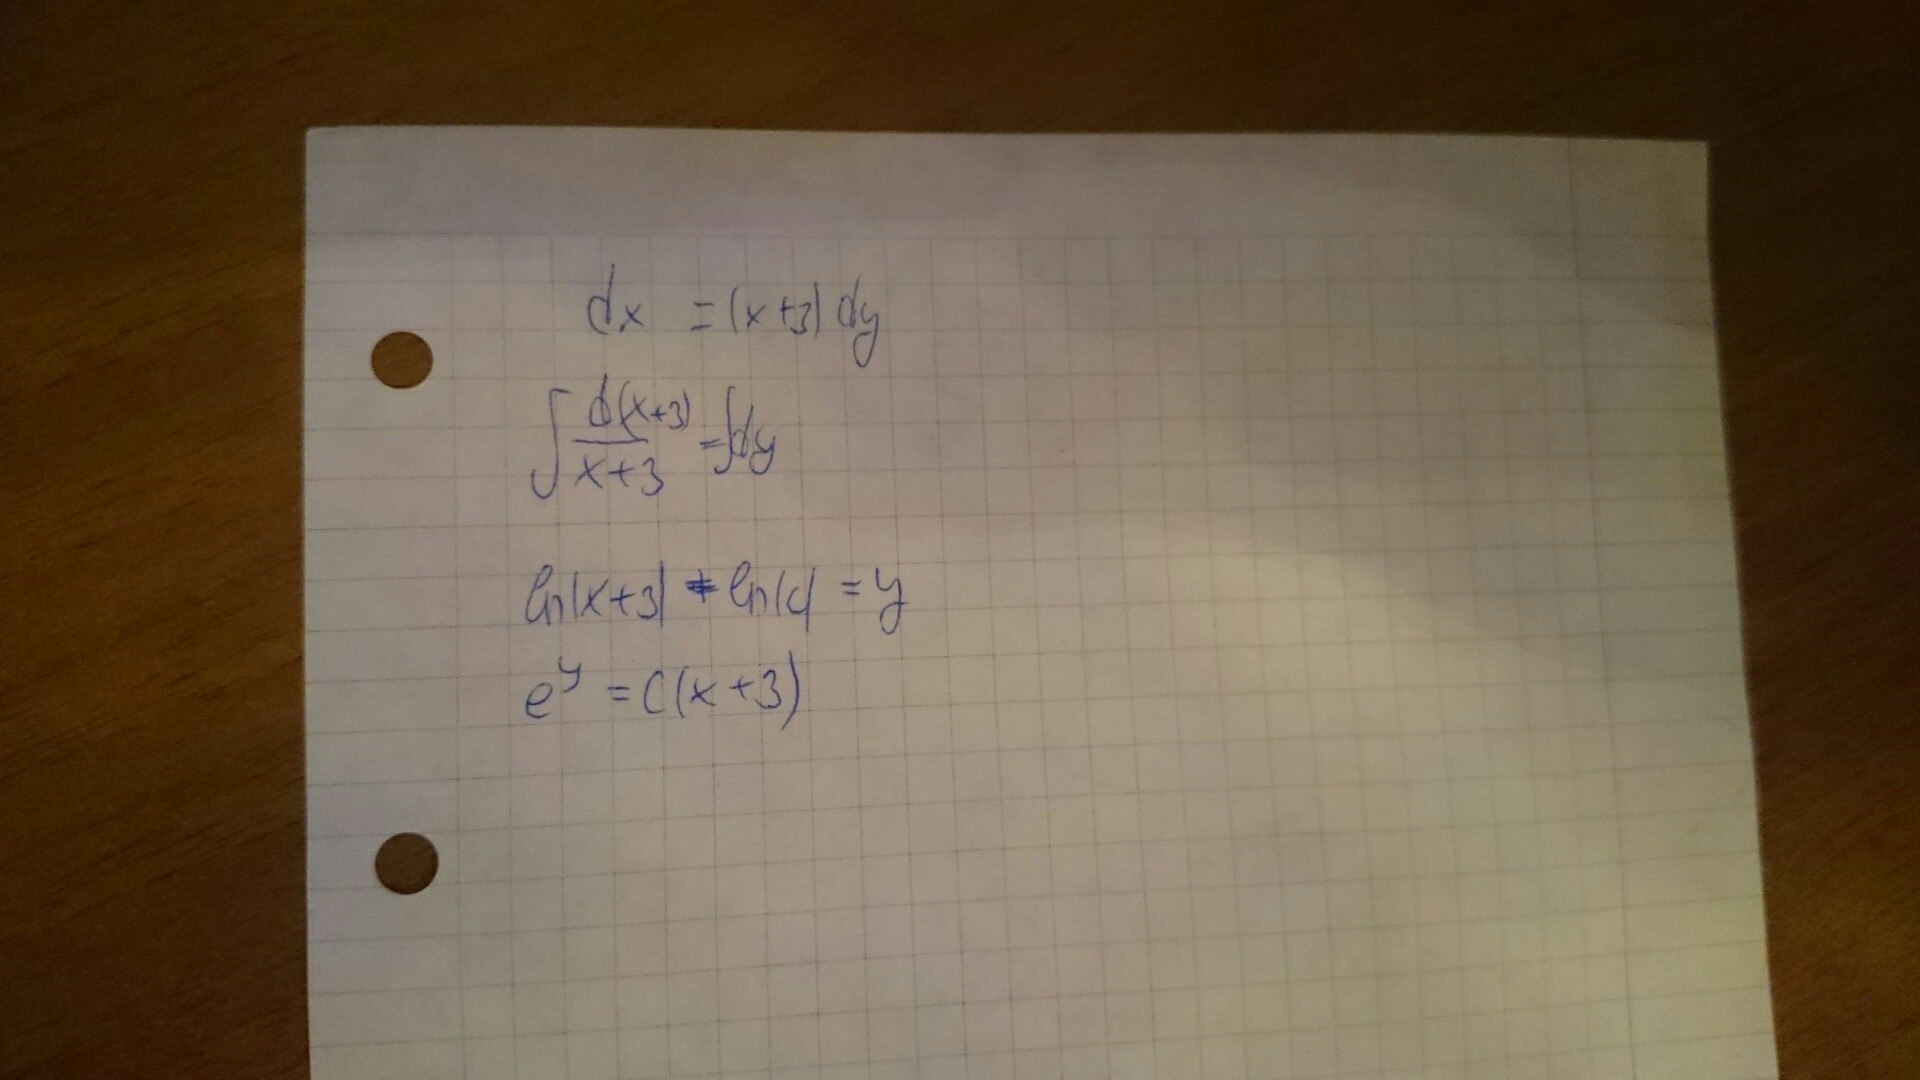 dx = (x+3) dy
∫ d(x+3)/(x+3) = ∫dy
ln|x+3| + ln|c| = y
e^y = C(x+3)